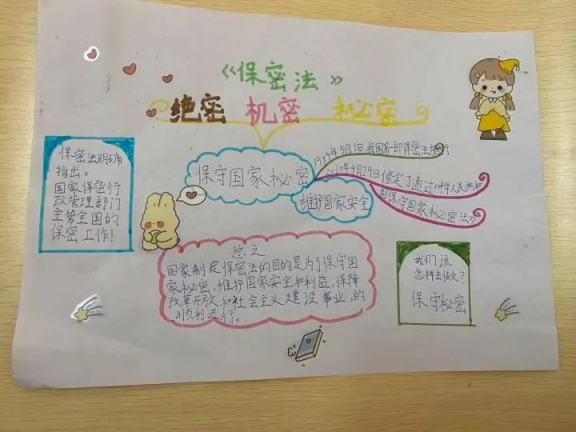 《保密法》
绝密 机密 秘密
保密法明确
指出。
国家保密行
政管理部门
主管全国的
保密工作!
保守国家秘密
维护国家安全
1989年5月1日我国首部保密法施行
2010年4月29日修定了通过《中华人民共和
国保守国家秘密法》
总之
国家制定保密法的目的是为了保守国
家秘密,维护国家安全和利益,保障
改革开放和社会主义建设事业的
顺利进行。
我们该
怎样去做?
保守秘密